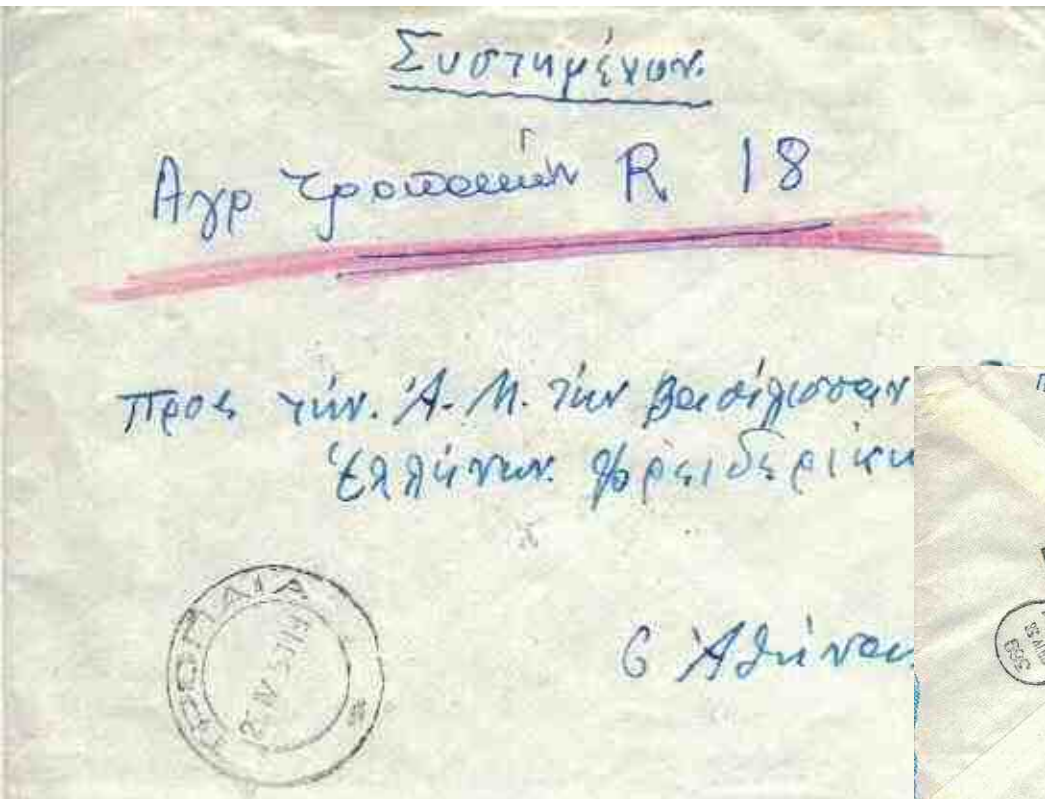 Συστημένον.
Αγρ Τροπαιών R 18
Προς την. Α. Μ. την βασίλισσαν
Ελλήνων. Φρειδερίκη
Αθήναι
369